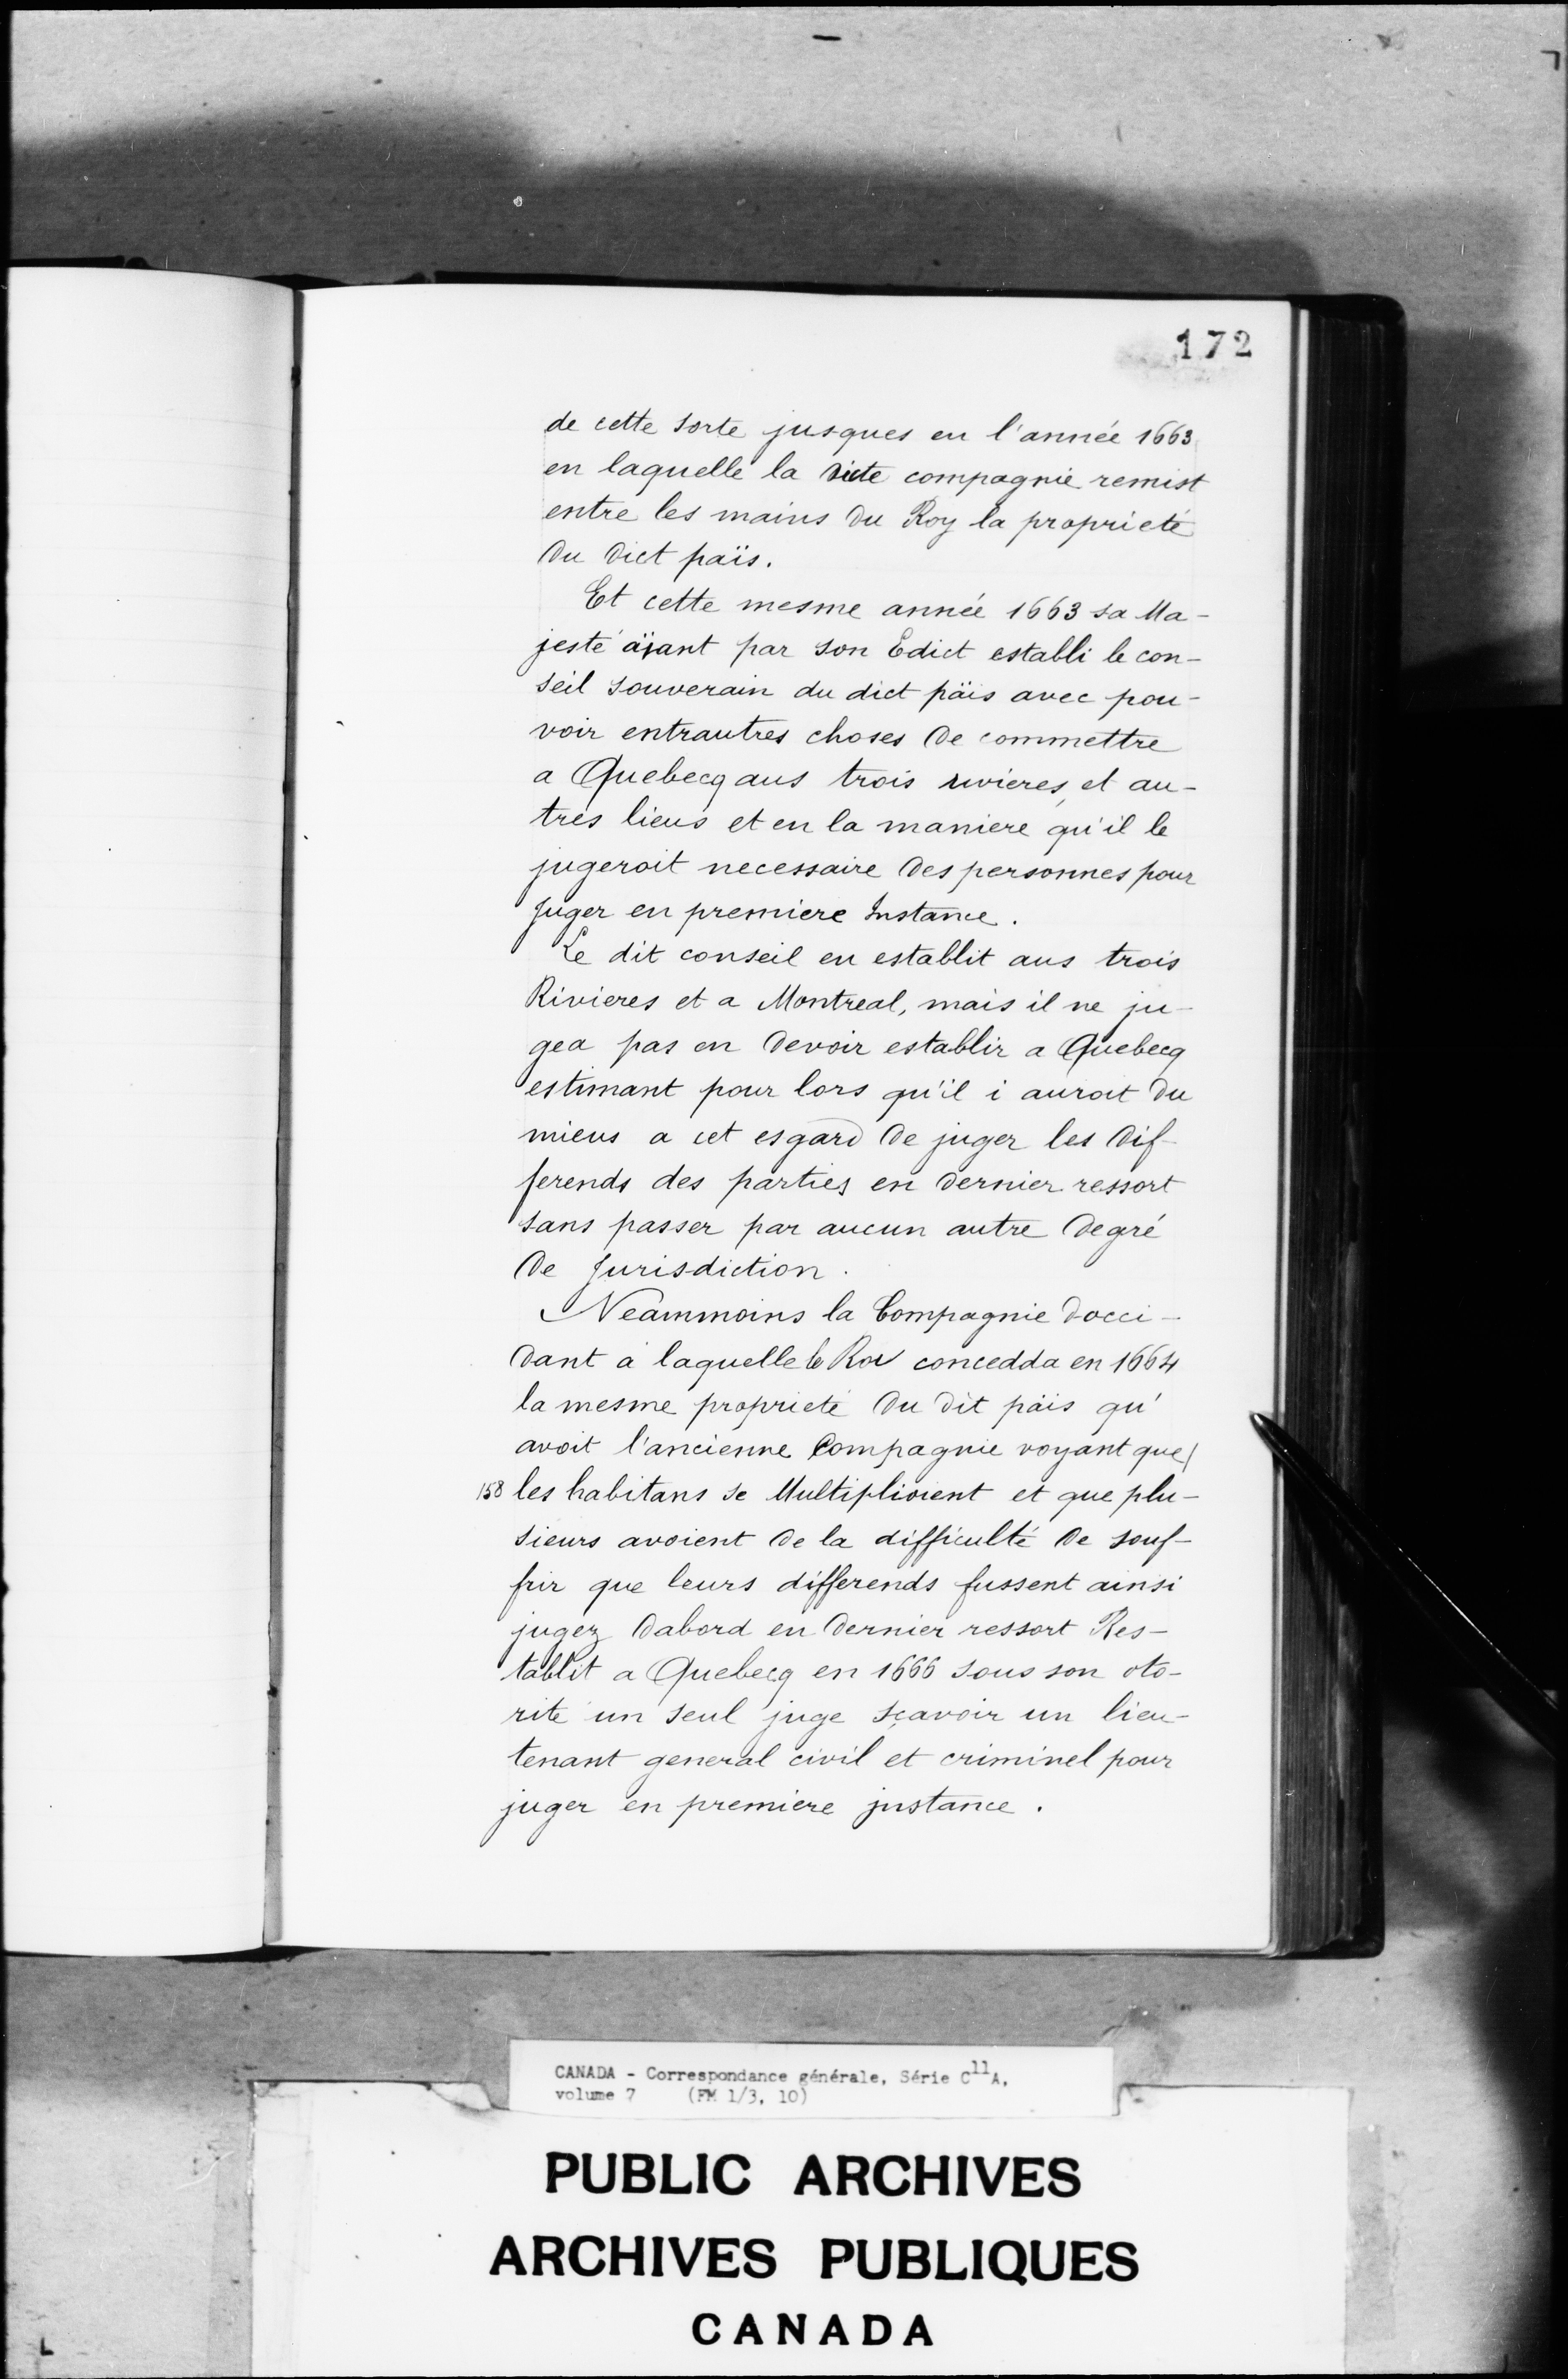 172
de cette sorte jusques en l'année 1663
en laquelle la dicte compagnie remist
entre les mains du Roy la proprieté
du dict païs.
Et cette mesme année 1663 sa Ma-
jesté aÿant par son Edict establi le con-
seil souverain du dict päis avec pou-
voir entrautres choses de commettre
a Quebecq aus trois rivieres, et au-
tres lieus et en la maniere qu'il le
jugeroit necessaire des personnes pour
Juger en premiere Instance.
Le dit conseil en establit aus trois
Rivieres et a Montreal, mais il ne ju-
gea pas en devoir establir a Quebecq
estimant pour lors qu'il i auroit du
mieus a cet esgard de juger les dif-
ferends des parties en dernier ressort
sans passer par aucun autre degré
de Jurisdiction.
Neammoins la Compagnie docci-
dant a laquelle le Roy concedda en 1664
la mesme proprieté du dit päis qu'
avoit l'ancienne Compagnie voyant que/
158 les habitans se Multiplioient et que plu-
sieurs avoient de la difficulté de souf-
frir que leurs differends fussent ainsi
jugez dabord en dernier ressort Res-
tablit a Quebecq en 1666 sous son oto-
rité un seul juge sçavoir un lieu-
tenant general civil et criminel pour
juger en premiere jnstance.
CANADA - Correspondance générale, Série C11A,
volume 7 (FM 1/3, 10)
PUBLIC ARCHIVES
ARCHIVES PUBLIQUES
CANADA